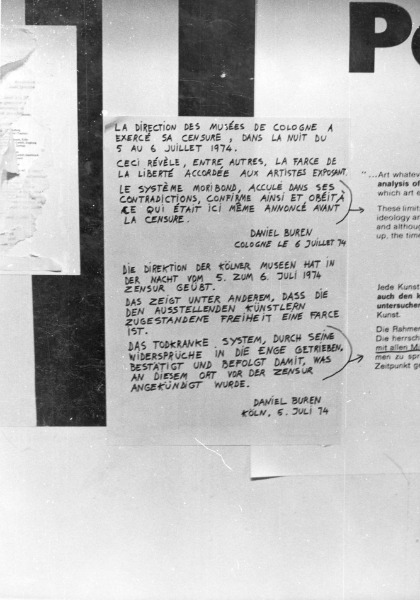 Pe
LA DIRECTION DES MUSÉES DE COLOGNE A
EXERCÉ SA CENSURE, DANS LA NUIT DU
5 AU 6 JUILLET 1974.
CECI RÉVÈLE, ENTRE AUTRES, LA FARCE DE
LA LIBERTÉ ACCORDÉE AUX ARTISTES EXPOSANT.
LE SYSTÈME MORIBOND, ACCULE DANS SES
CONTRADICTIONS, CONFIRME AINSI ET OBÉIT À
CE QUI ÉTAIT ICI MÊME ANNONCÉ AVANT
LA CENSURE.
DANIEL BUREN
COLOGNE LE 6 JUILLET 74
DIE DIREKTION DER KÖLNER MUSEEN HAT IN
DER NACHT VOM 5. ZUM 6. JULI 1974
ZENSUR GEÜBT.
DAS ZEIGT UNTER ANDEREM, DASS DIE
DEN AUSSTELLENDEN KÜNSTLERN
ZUGESTANDENE FREIHEIT EINE FARCE
IST.
DAS TODKRANKE SYSTEM, DURCH SEINE
WIDERSPRÜCHE IN DIE ENGE GETRIEBEN,
BESTÄTIGT UND BEFOLGT DAMIT, WAS
AN DIESEM ORT VOR DER ZENSUR
ANGEKÜNDIGT WURDE.
DANIEL BUREN
KÖLN, 6. JULI 74
"...Art whatev
analysis of
which art e
These limit
ideology an
and althoug
up, the time
Jede Kunst
auch den k
untersuchen
Kunst.
Die Rahmen
Die herrsch
mit allen Mi
men zu spr
Zeitpunkt ge